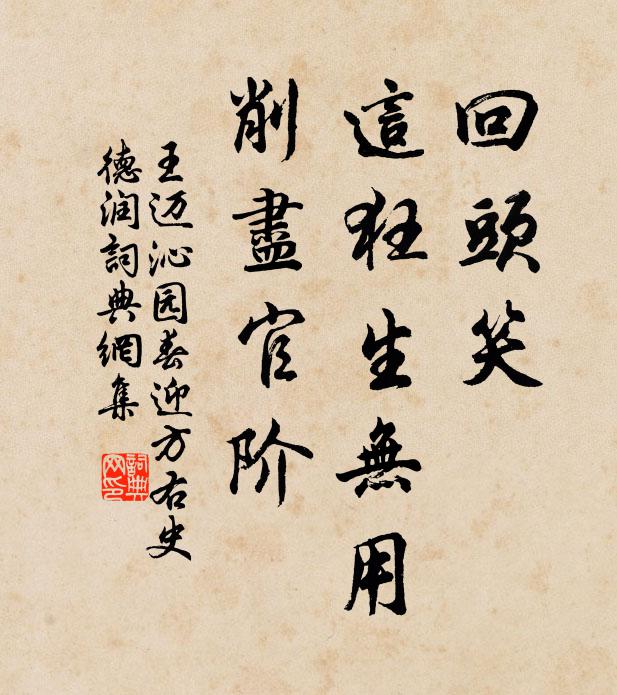 回頭笑
這狂生無用
削盡官阶
王迈沁园春迎方右史
德润詞典網集
詞典
网印